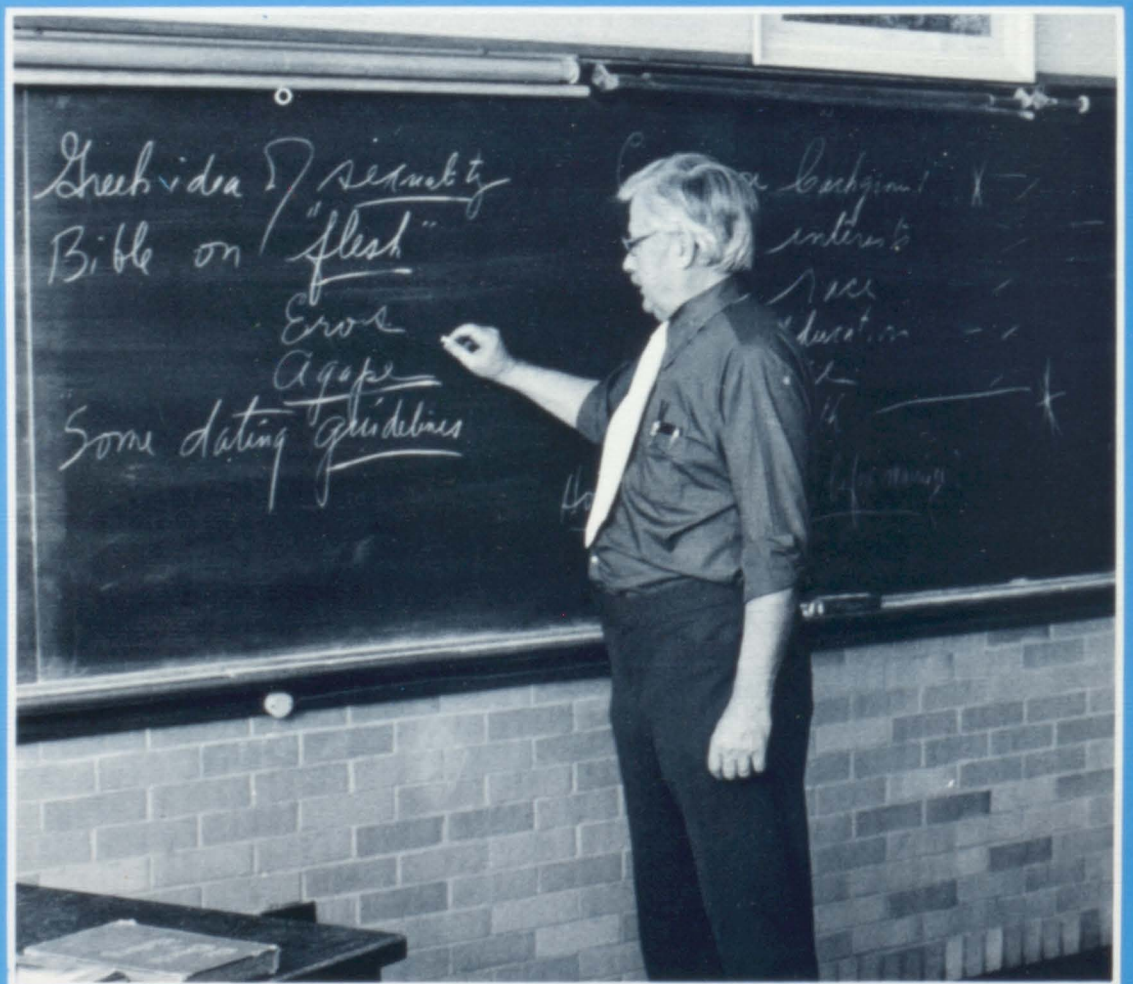 Greek idea of sexuality
Bible on "flesh"
Eros
Agape
Some dating guidelines
background
interests
race
education
before marriage